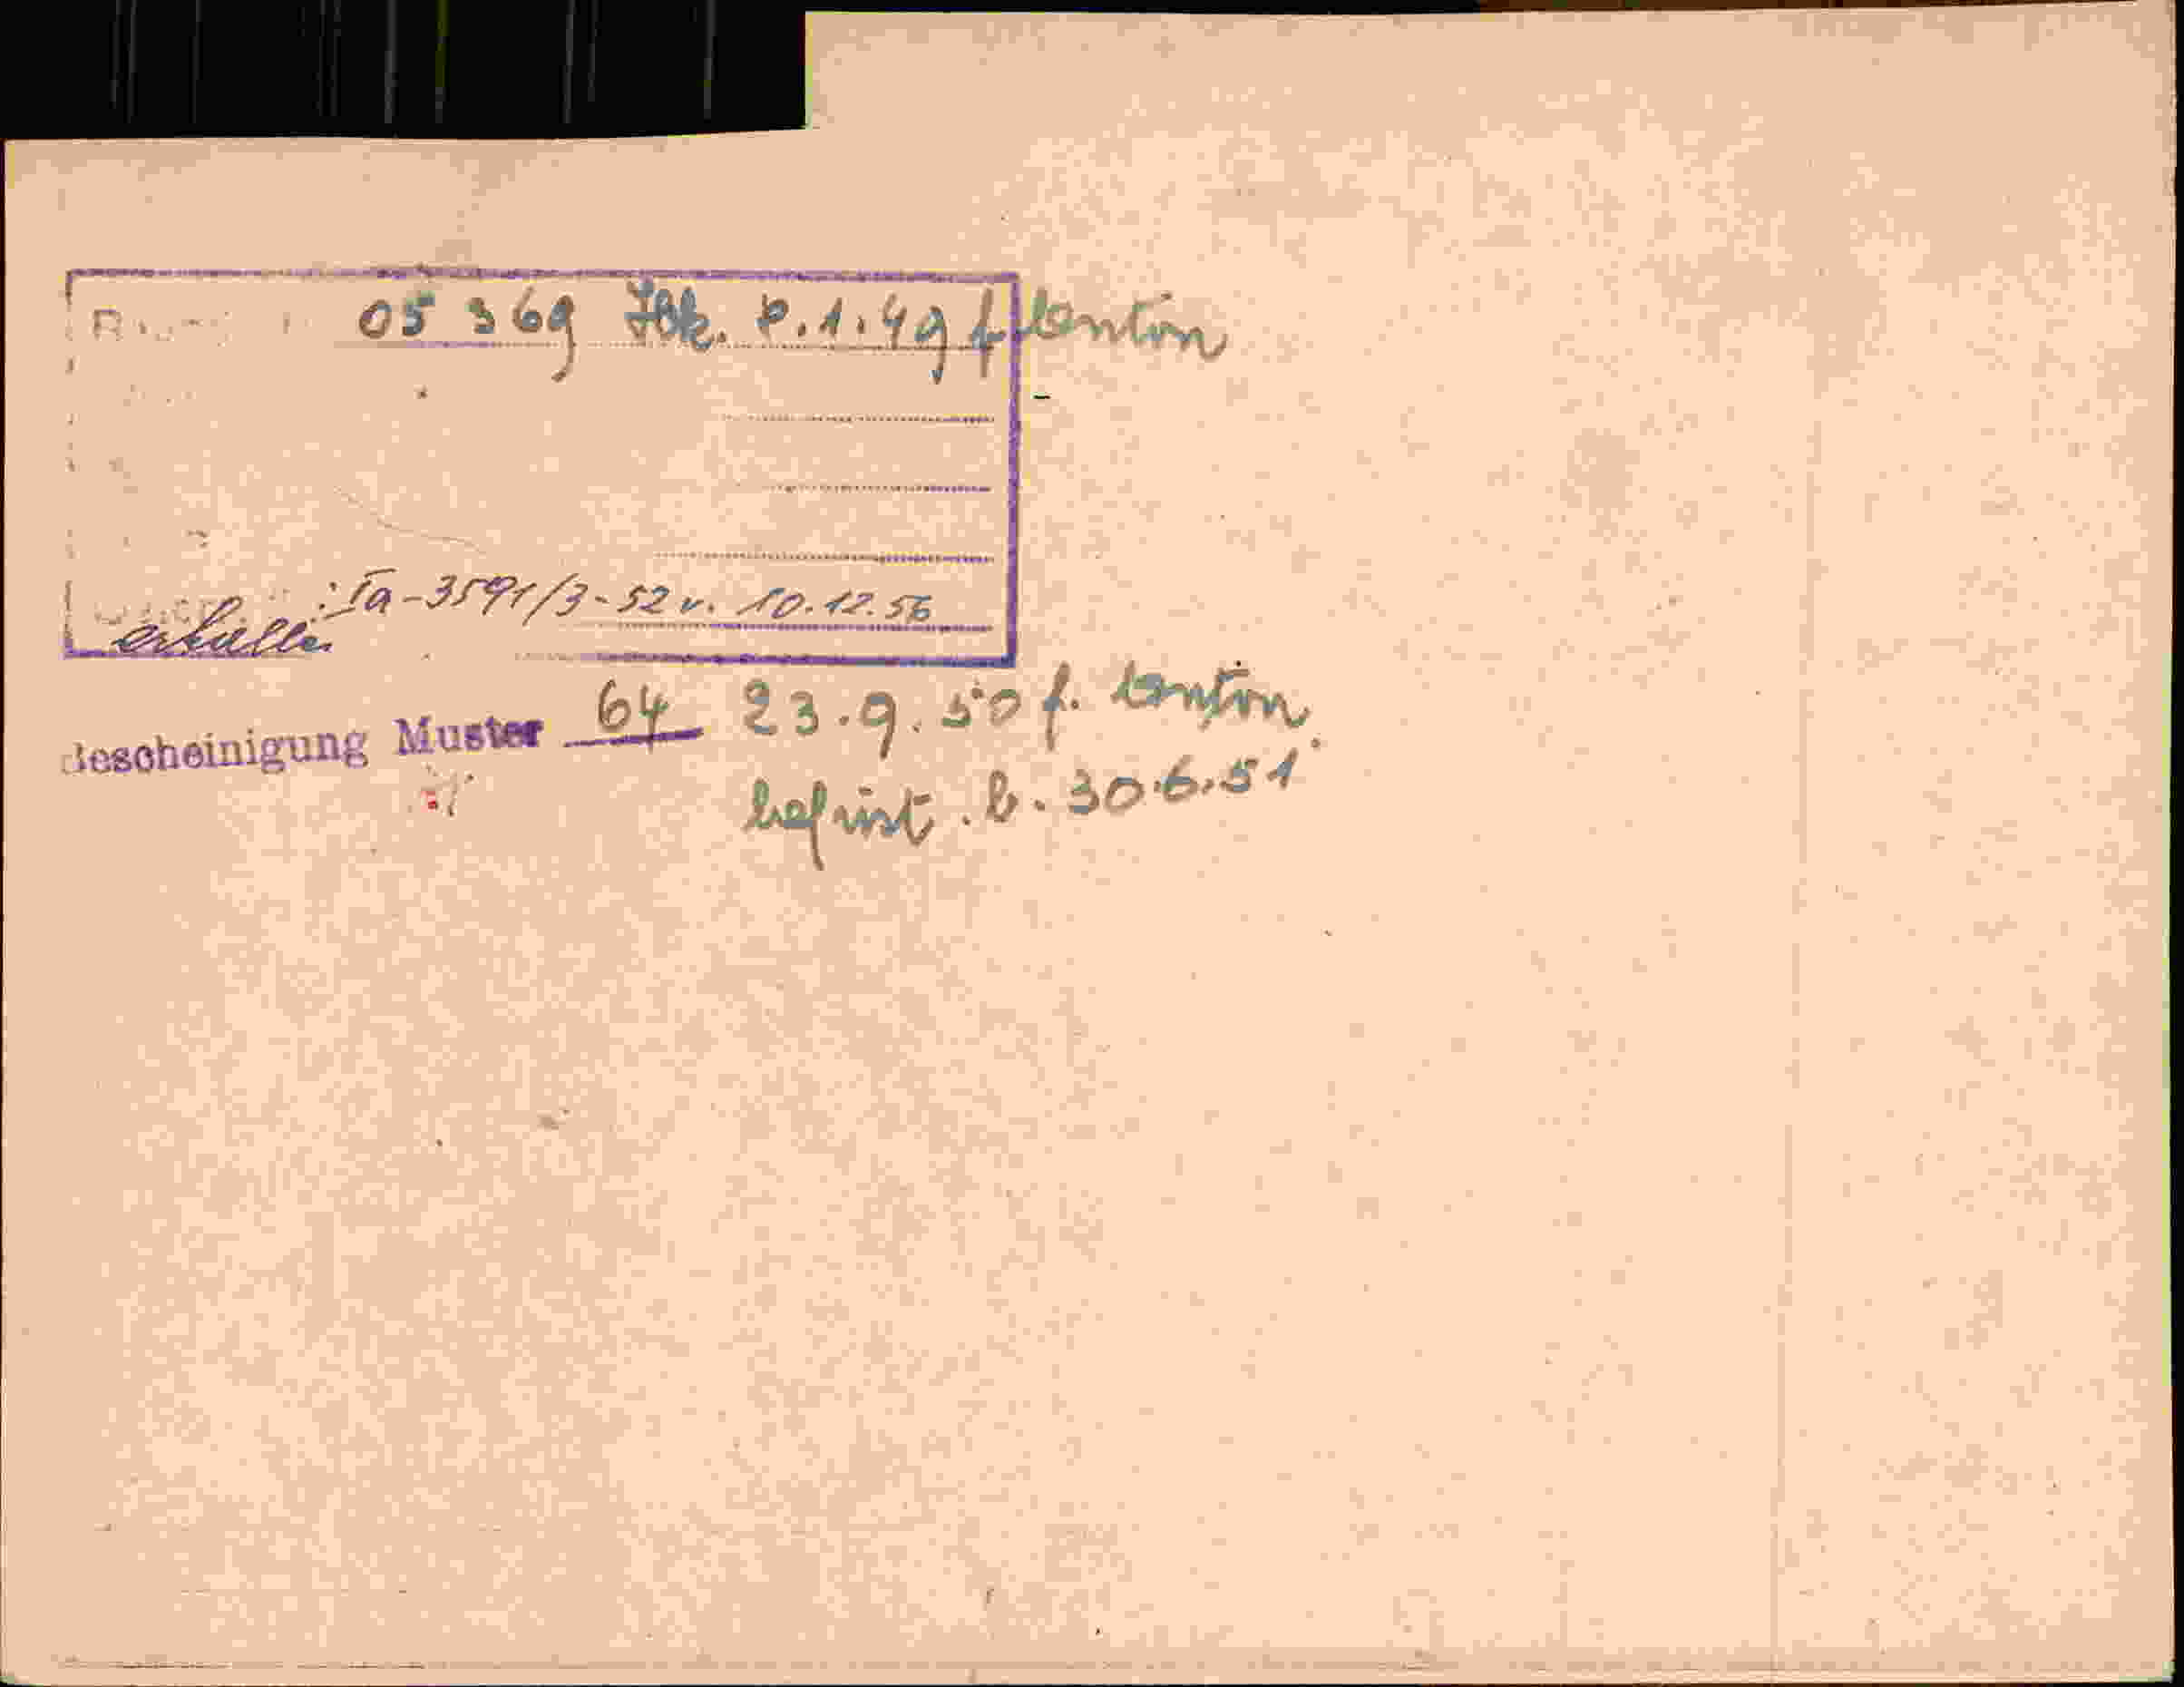 05 369 Jbk. 8.1.49 f. Anton
: Ia-3591/3-52 v. 10.12.56
Bescheinigung Muster 64 23.9.50 f. Anton
befrist. b. 30.6.51